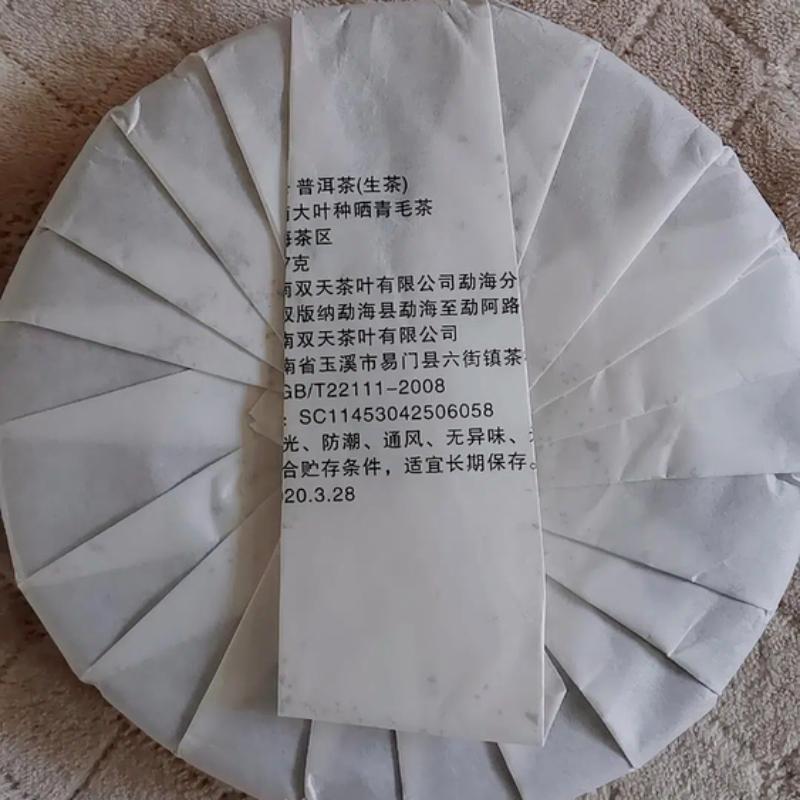 普洱茶(生茶)
大叶种晒青毛茶
海茶区
7克
南双天茶叶有限公司勐海分
双版纳勐海县勐海至勐阿路
南双天茶叶有限公司
南省玉溪市易门县六街镇茶
GB/T22111-2008
: SC11453042506058
光、防潮、通风、无异味、
合贮存条件，适宜长期保存。
20.3.28